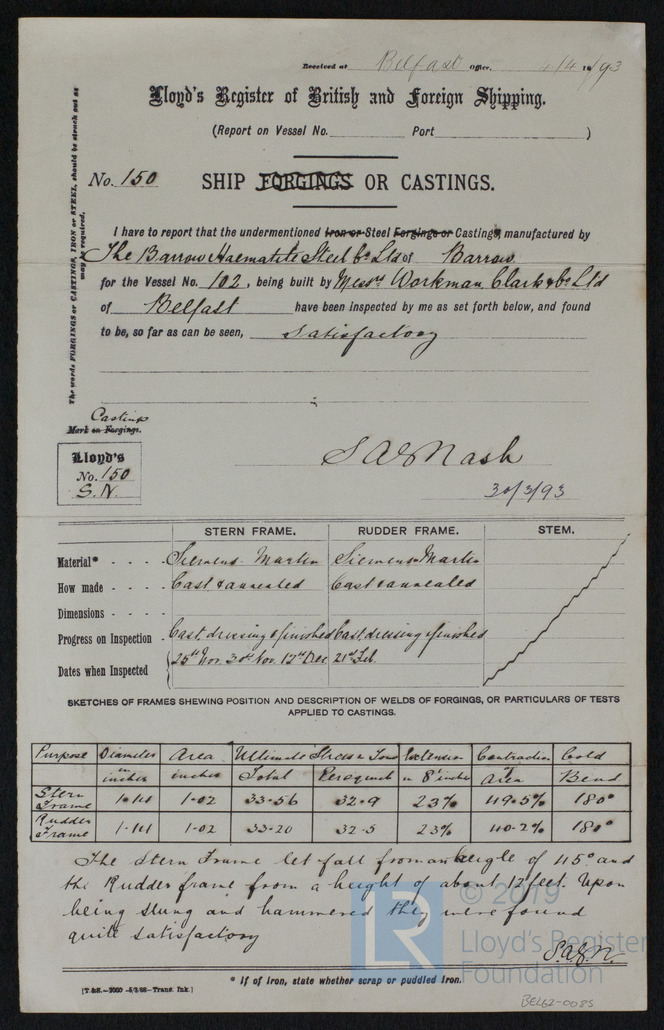 Received at Belfast Office, 4/4 1893
Lloyd's Register of British and Foreign Shipping.
(Report on Vessel No. Port )
No. 150 SHIP FORGINGS OR CASTINGS.
The words FORGINGS or CASTINGS, IRON or STEEL, should be struck out as may be required.
I have to report that the undermentioned Iron or Steel Forgings or Castings, manufactured by
The Barrow Haematite Steel Co Ltd of Barrow
for the Vessel No. 102, being built by Messrs Workman Clark & Co Ltd
of Belfast have been inspected by me as set forth below, and found
to be, so far as can be seen, satisfactory
Casting
Mark on Forgings.
Lloyd's
No. 150
S.N.
Nash
30/3/93
STERN FRAME. RUDDER FRAME. STEM.
Material* Siemens Martin Siemens Martin
How made Cast & annealed Cast & annealed
Dimensions
Progress on Inspection Cast, dressing & finished Cast dressing & finished
Dates when Inspected 25th Nov. 30th Nov. 12th Dec 21st Feb.
SKETCHES OF FRAMES SHEWING POSITION AND DESCRIPTION OF WELDS OF FORGINGS, OR PARTICULARS OF TESTS
APPLIED TO CASTINGS.
Purpose Diameter Area Ultimate Stress in Tons Extension Contraction Cold
in inches inches Total Per sq inch in 8 inches of Area Bend
Stern Frame 1.141 1.02 33.56 32.9 23% 49.5% 180°
Rudder Frame 1.141 1.02 33.20 32.5 23% 40.2% 180°
The Stern Frame let fall from an angle of 45° and
the Rudder frame from a height of about 12 feet. Upon
being slung and hammered they were found
quite satisfactory
S.A.N.
* If of Iron, state whether scrap or puddled Iron.
[T. & S.—2000—5/2/88—Trans. Ink.]
BEL62-0085
LR
© 2019
Lloyd's Register
Foundation